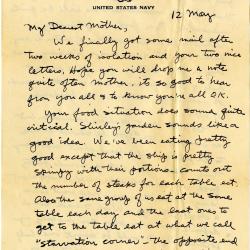 UNITED STATES NAVY
12 May
My Dearest Mother,
We finally got some mail after
two weeks of isolation and your two nice
letters. Hope you will drop me a note
quite often mother, it's so good to hear
from you all & to know you're all O.K.
Your food situation does sound quite
critical. Shirley's garden sounds like a
good idea. We've been eating pretty
good except that the ship is pretty
skimpy with their portions - counts out
the number of steaks for each table, etc.
Also the same group of us eat at the same
table each day and the last ones to
get to the table eat at what we call
"starvation corner" - the opposite end